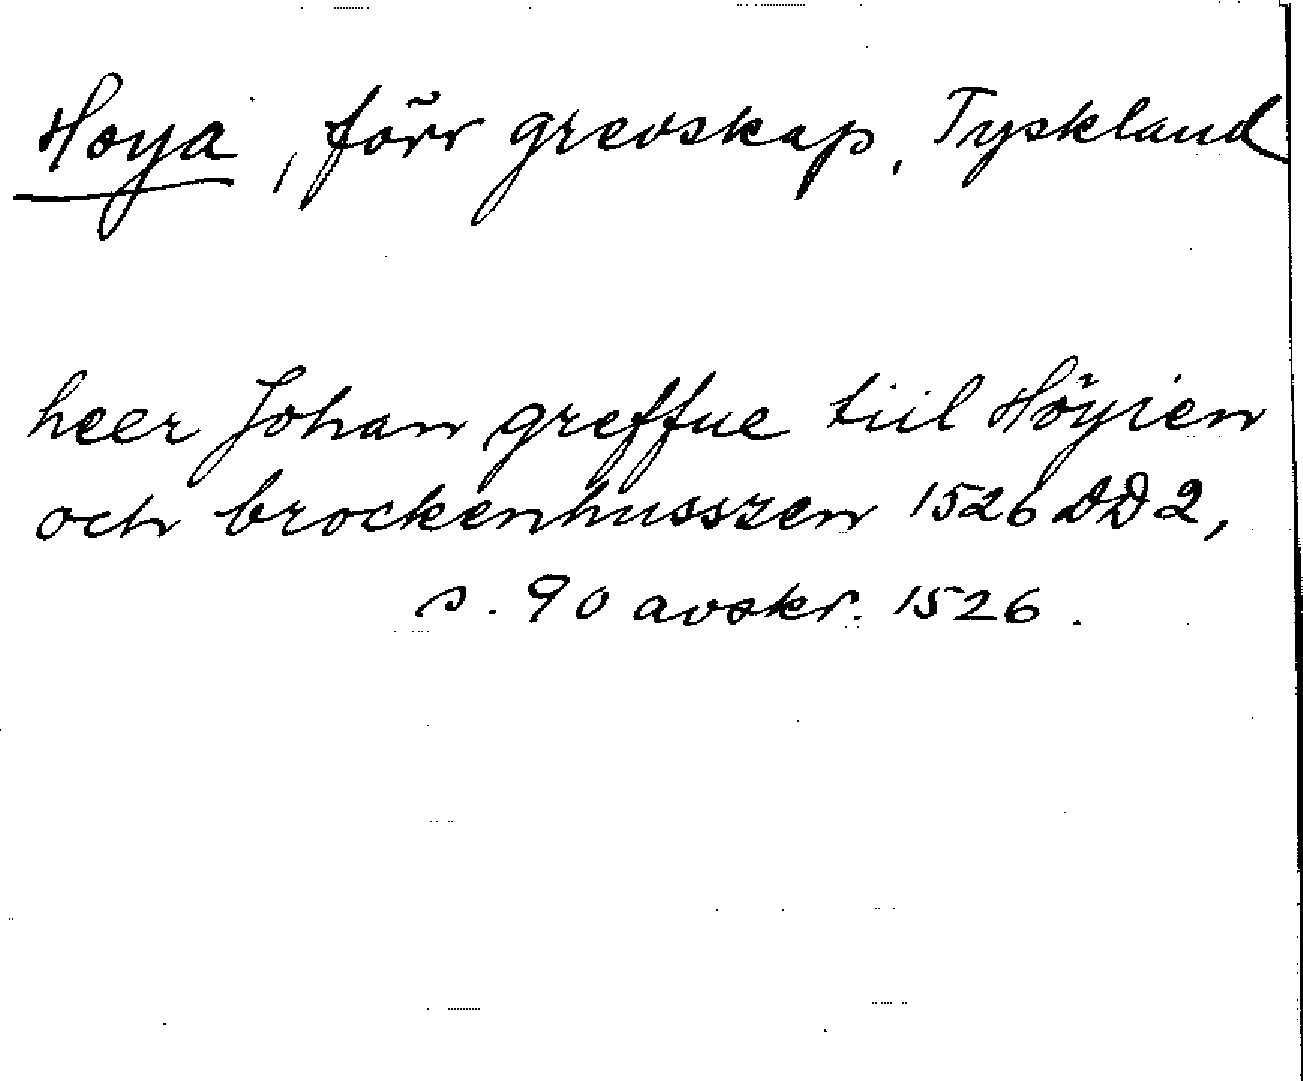 Hoya, förr grevskap, Tyskland
heer Johan greffue tiil Höyien
och brockenhusszen 1526 DD 2,
s. 90 avskr. 1526.